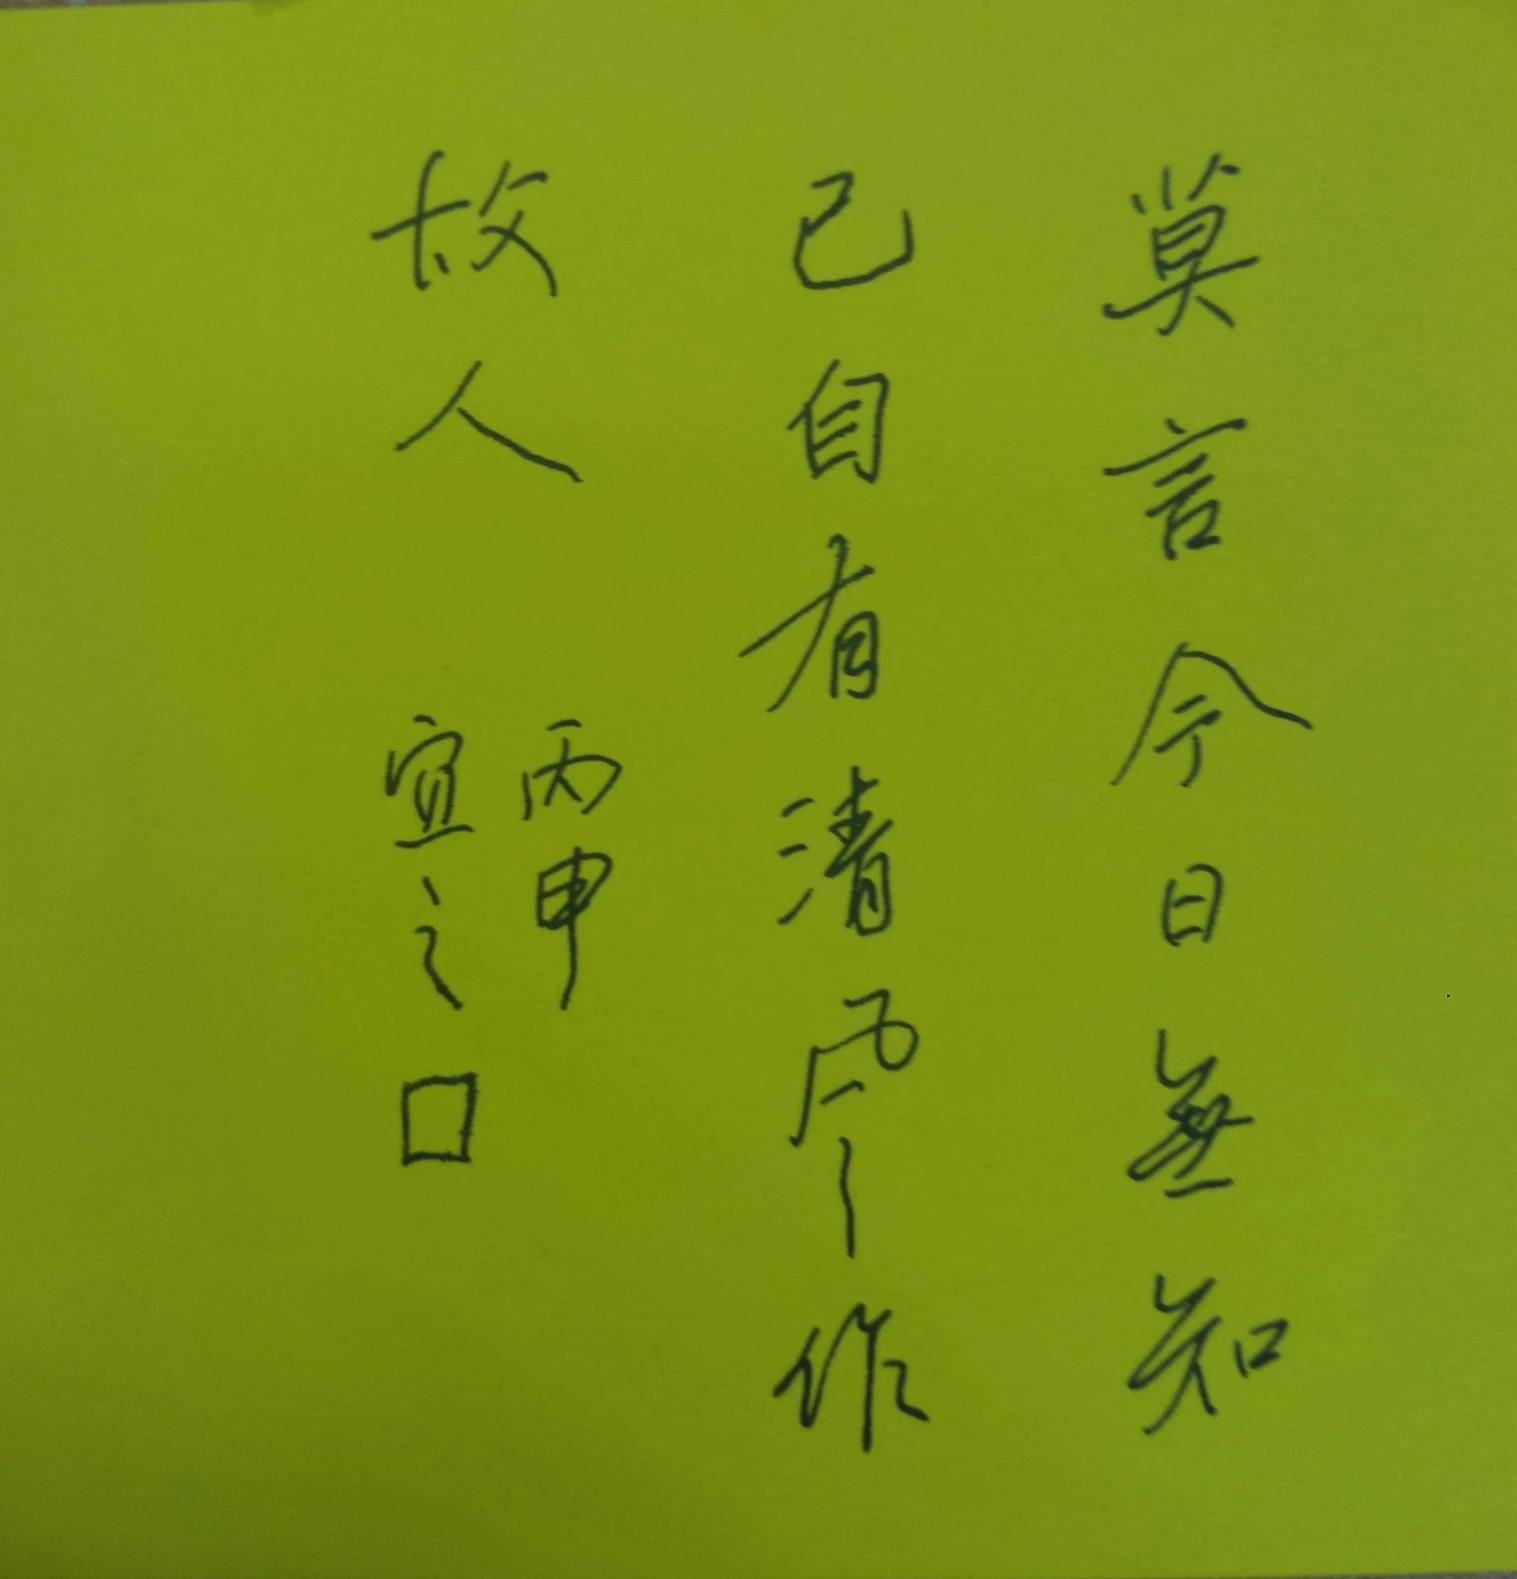 莫言今日無知
己自有清風作
故人
丙申
宜之